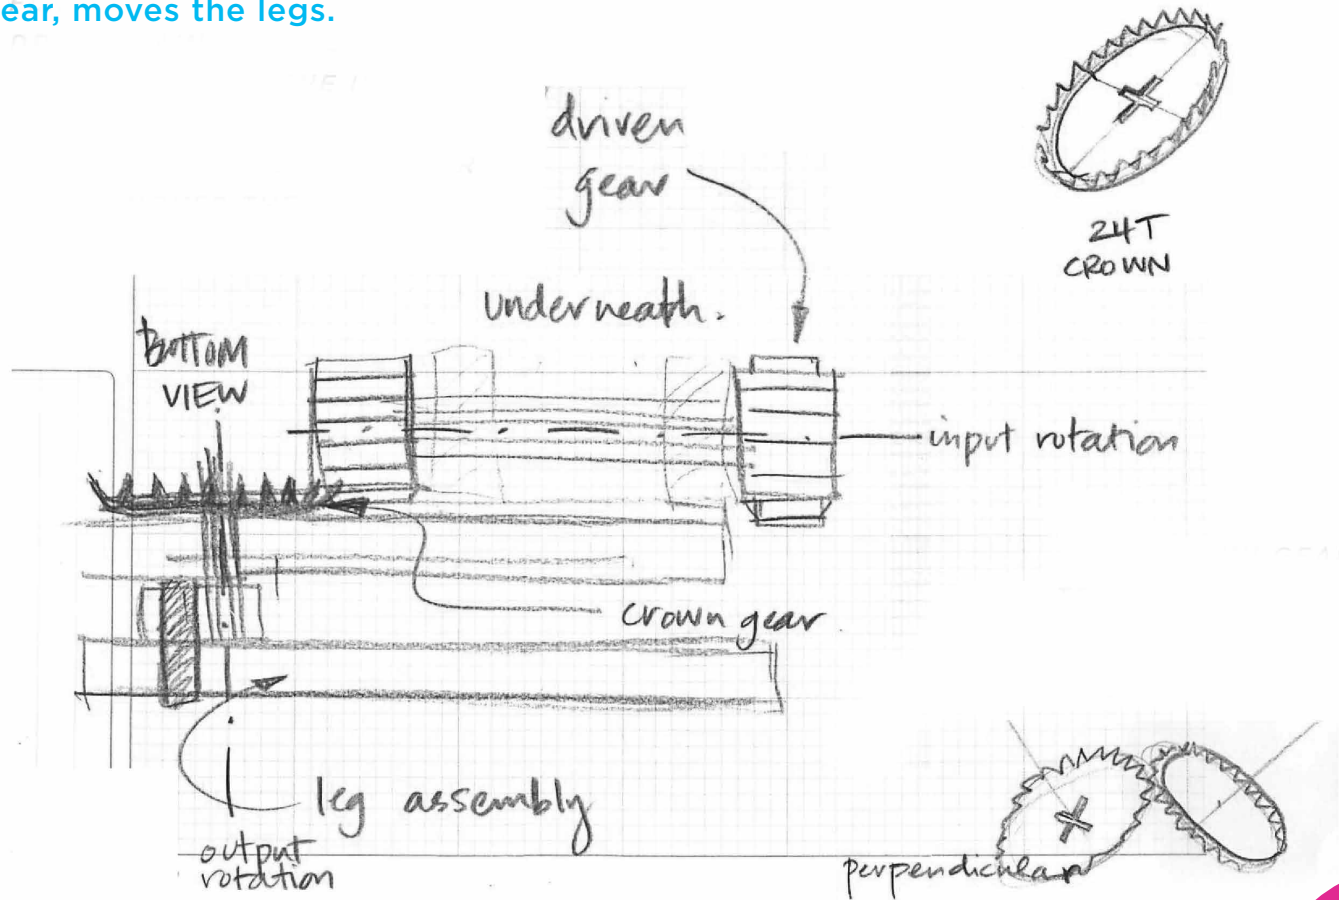 ear, moves the legs.
driven
gear
24T
CROWN
underneath.
BOTTOM
VIEW
input rotation
crown gear
leg assembly
output
rotation
perpendicular